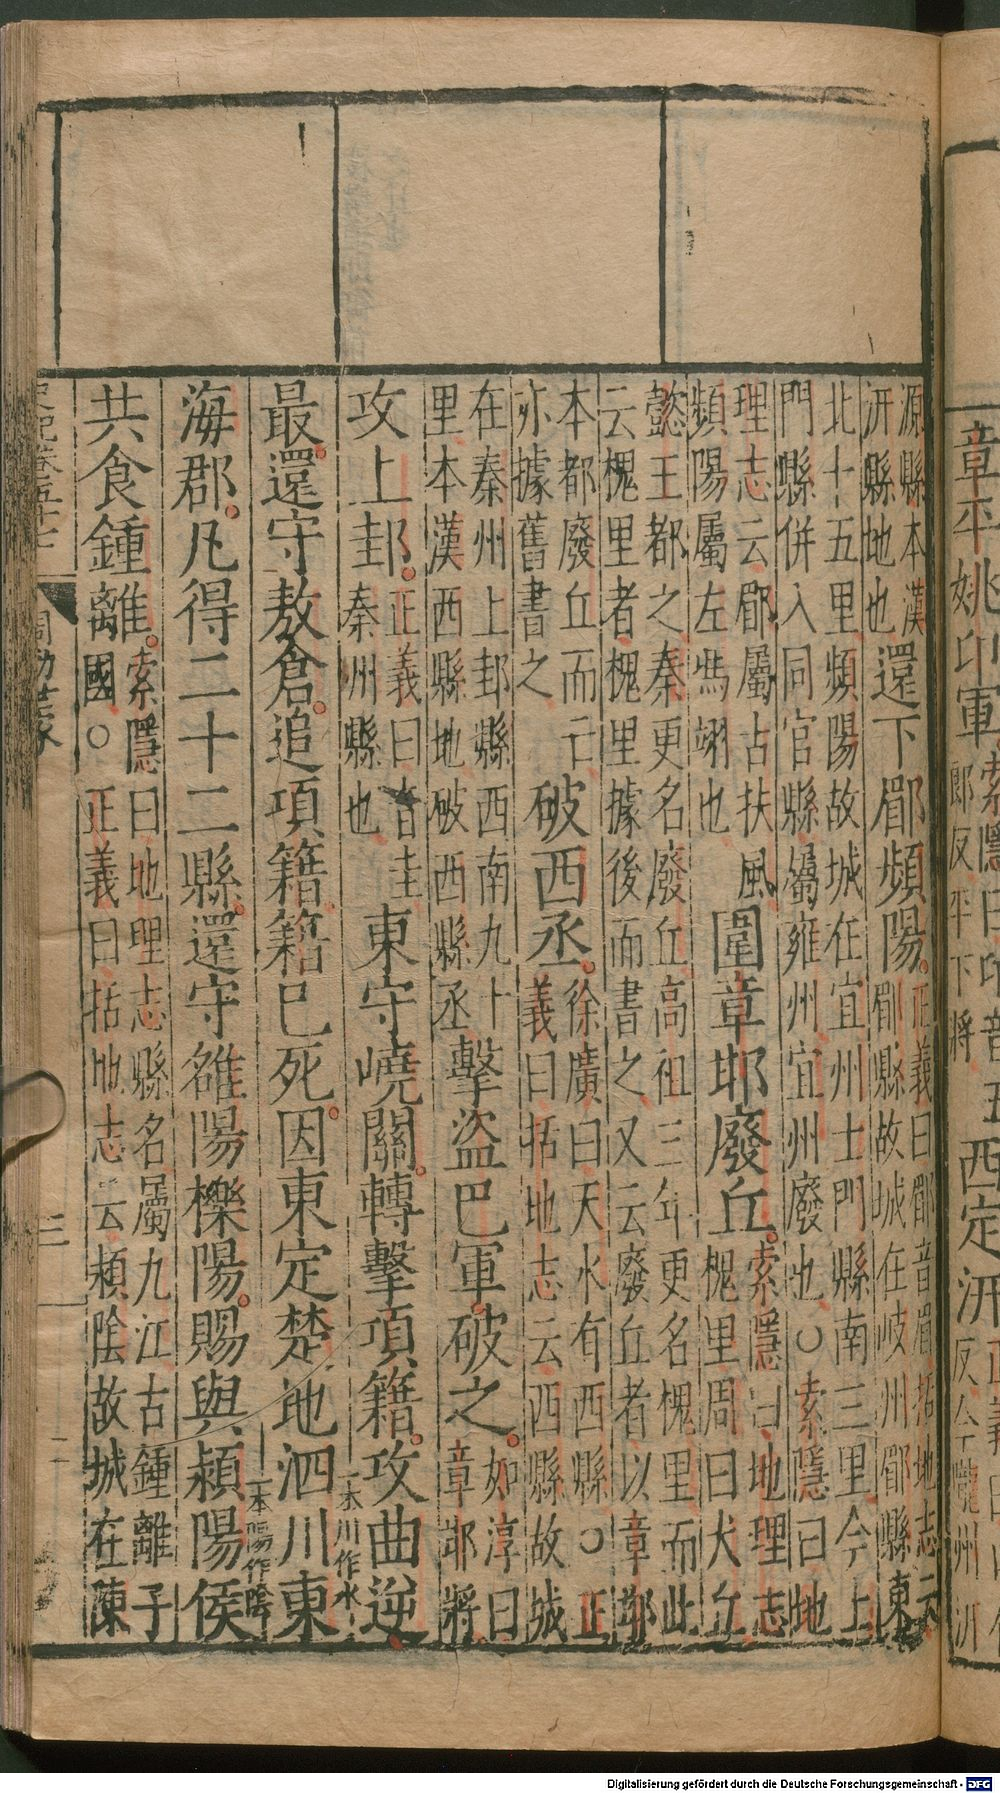 章平姚卬軍
索隱曰卬音五
郎反平下將
西定汧
反今隴州汧
源縣本漢
汧縣地也
還下郿頻陽
正義曰郿音眉括地志云
郿縣故城在岐州郿縣東
北十五里頻陽故城在宜州土門縣南三里今上
門縣併入同官縣屬雍州宜州廢也〇索隱曰地
理志云郿屬古扶風
頻陽屬左馮翊也
圍章邯廢丘
索隱曰地理志
槐里周曰犬丘
懿王都之秦更名廢丘高祖三年更名槐里而此
云槐里者槐里據後而書之又云廢丘者以章邯
本都廢丘而云
亦據舊書之
破西丞
徐廣曰天水有西縣〇正
義曰括地志云西縣故城
在秦州上邽縣西南九十
里本漢西縣地破西縣丞
擊盜巴軍破之
如淳曰
章邯將
攻上邽
正義曰音圭
秦州縣也
東守嶢關轉擊項籍攻曲逆
最還守敖倉追項籍籍已死因東定楚地泗川東
一本川作水
海郡凡得二十二縣還守雒陽櫟陽賜與潁陽侯
一本陽作陰
共食鍾離
索隱曰地理志縣名屬九江古鍾離子
國〇正義曰括地志云潁陰故城在陳
史記卷五十七
周勃世家
三
Digitalisierung gefördert durch die Deutsche Forschungsgemeinschaft - DFG